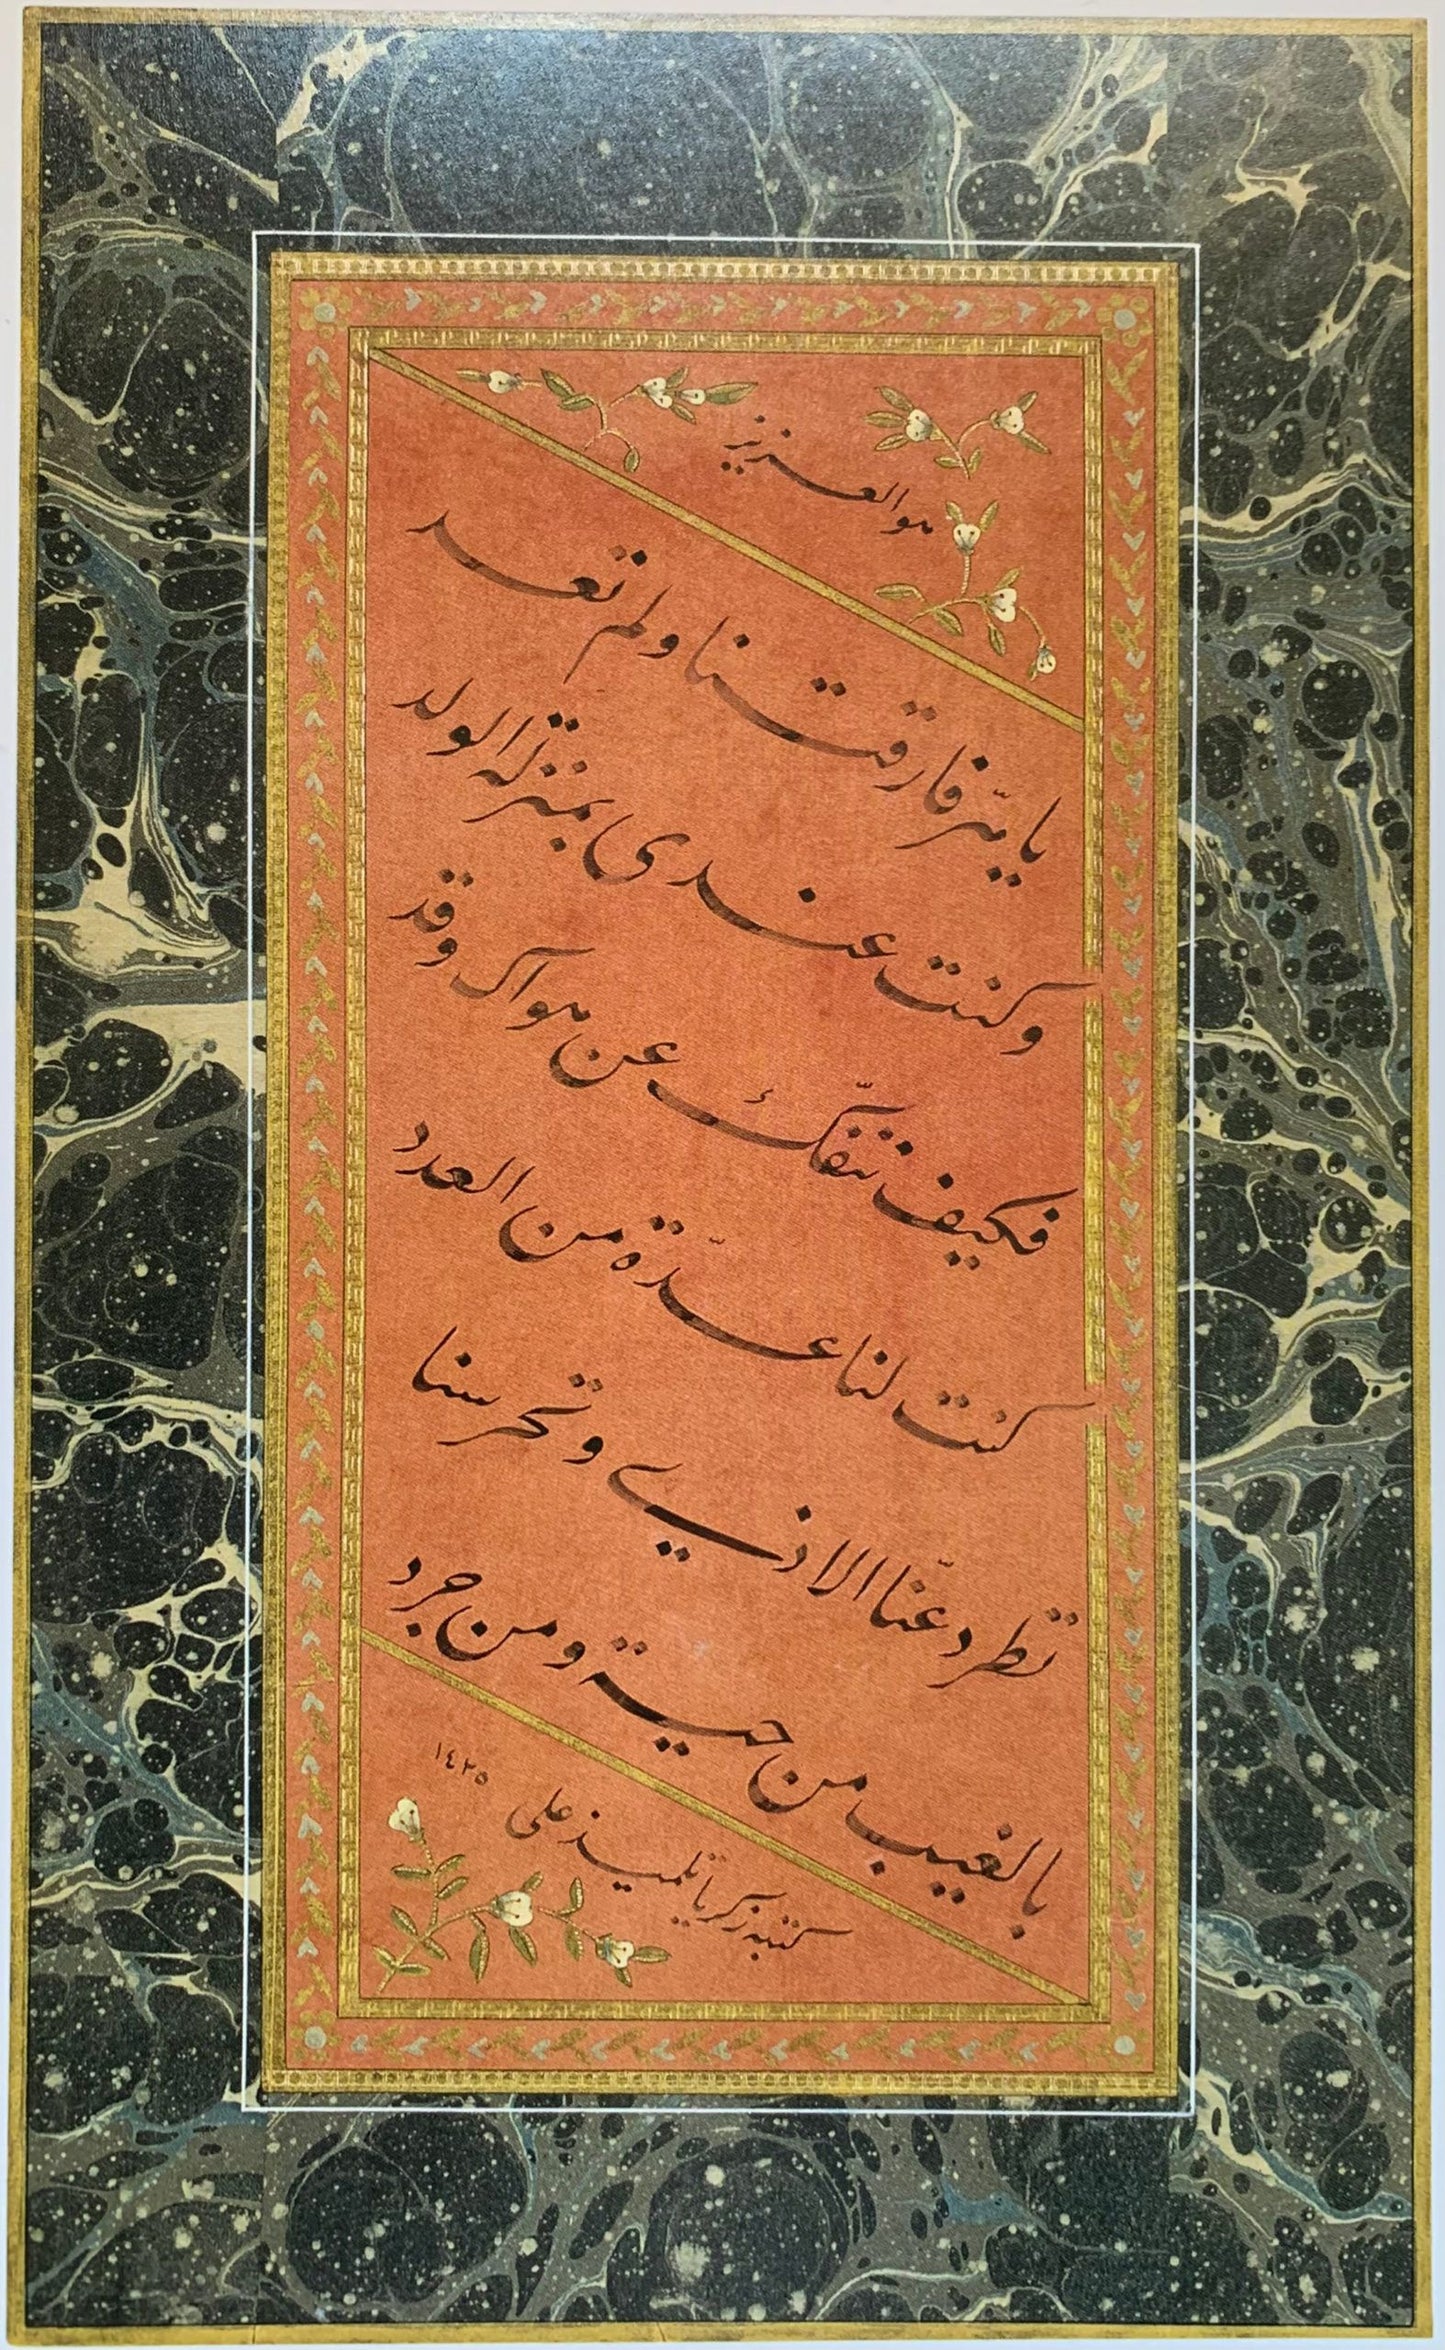 هو العزيز
يا هرّ فارقتنا ولم تعد
وكنت عندى بمنزلة الولد
فكيف ننفكّ عن هواك وقد
كنت لنا عدّة من العدد
تطرد عنّا الاذي وتحرسنا
بالغيب من حية ومن جرد
كتبه زكريا تلميذ على ١٤٢٥